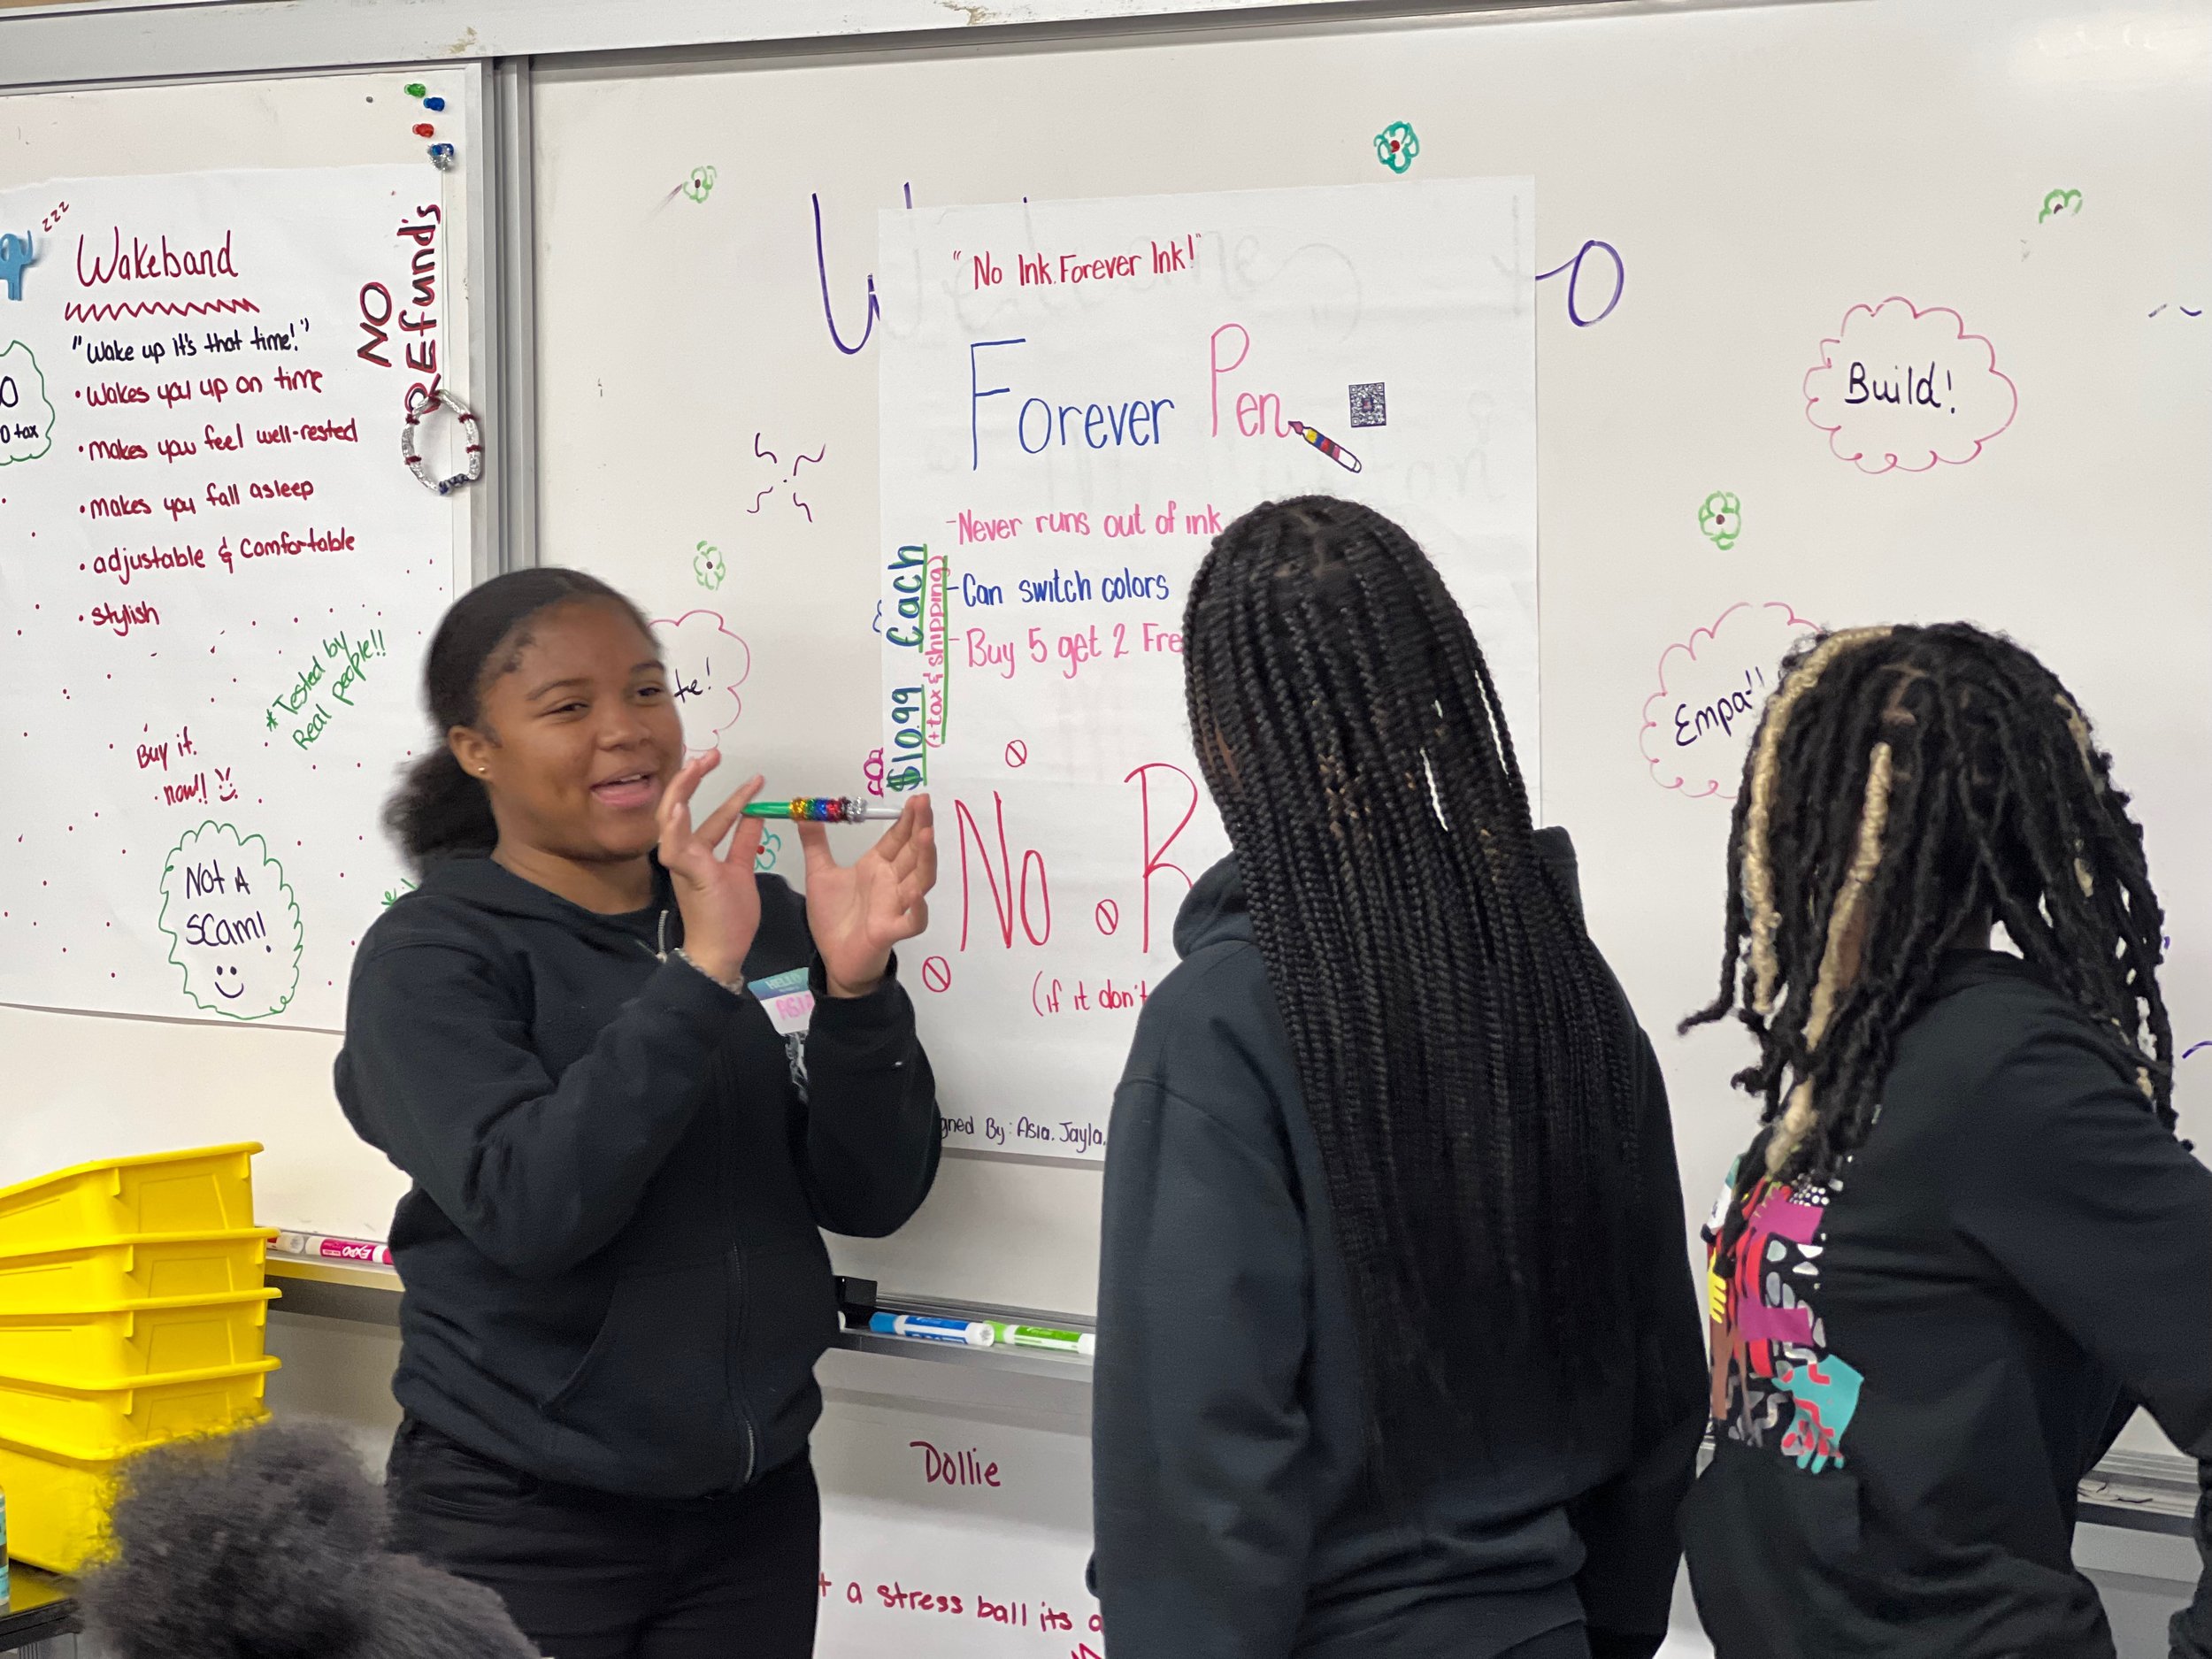 zzz
Wakeband
"Wake up It's that time!"
• Wakes you up on time
• makes you feel well-rested
• makes you fall asleep
• adjustable & Comfortable
• stylish
NO
REfunds
0 tax
*Tested by
Real people!!
Buy it
now!!
NOT A
SCam!
"No Ink. Forever Ink!"
Forever Pen
-Never runs out of ink
-Can switch colors
-Buy 5 get 2 Fre
$10.99 Each
(+ tax & shipping)
No . R
(if it don't
gned By: Asia. Jayla.
Build!
Empa
te!
HELLO
ASIA
EXPO
Dollie
t a stress ball its a